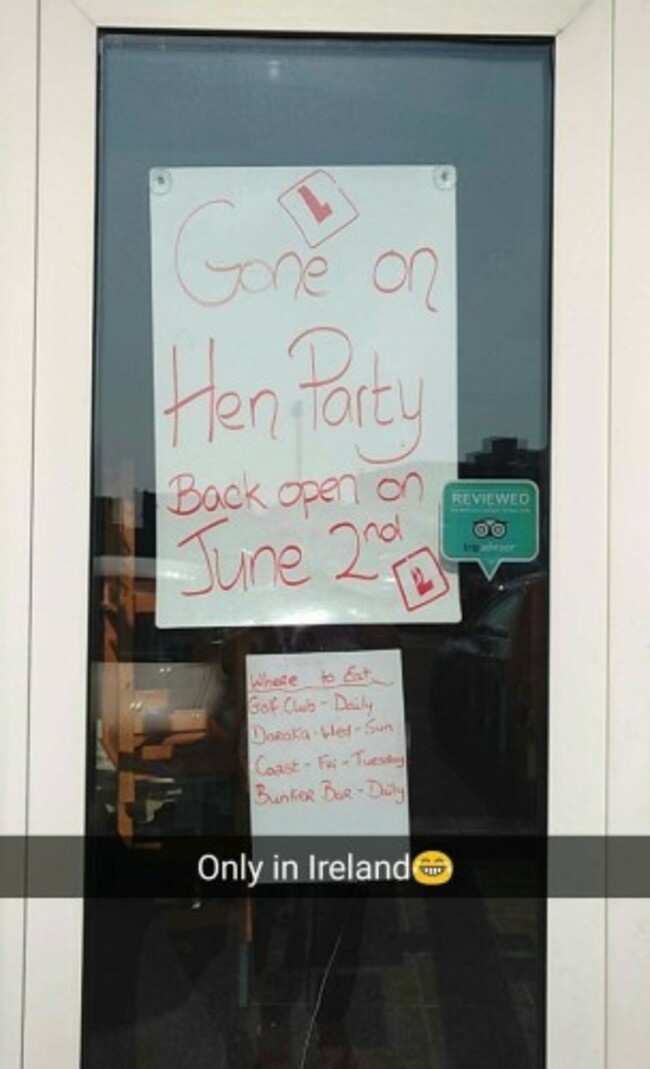 L
Gone on
Hen Party
Back open on
June 2nd
L
REVIEWED
tripadvisor
Where to Eat
Golf Club - Daily
Daroka - Wed - Sun
Coast - Fri - Tuesday
Bunker Bar - Daily
Only in Ireland😁